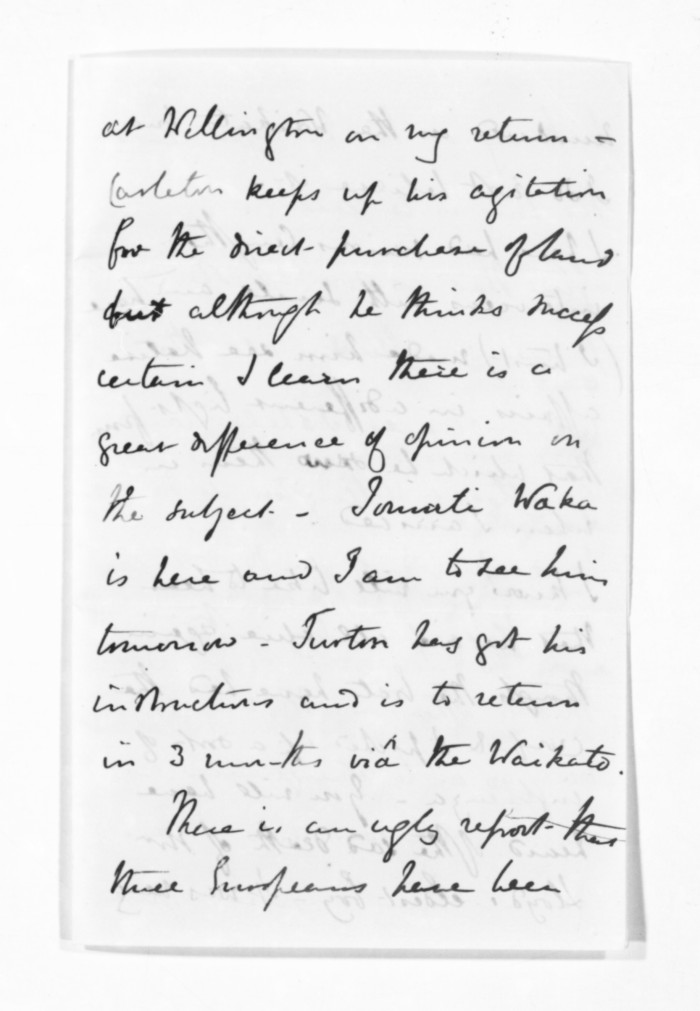 at Wellington on my return -
Carleton keeps up his agitation
for the direct purchase of land
but although he thinks success
certain I learn there is a
great difference of opinion on
the subject - Tomati Waka
is here and I am to see him
tomorrow - Turton has got his
instructions and is to return
in 3 months viâ the Waikato.
There is an ugly report that
three Europeans have been